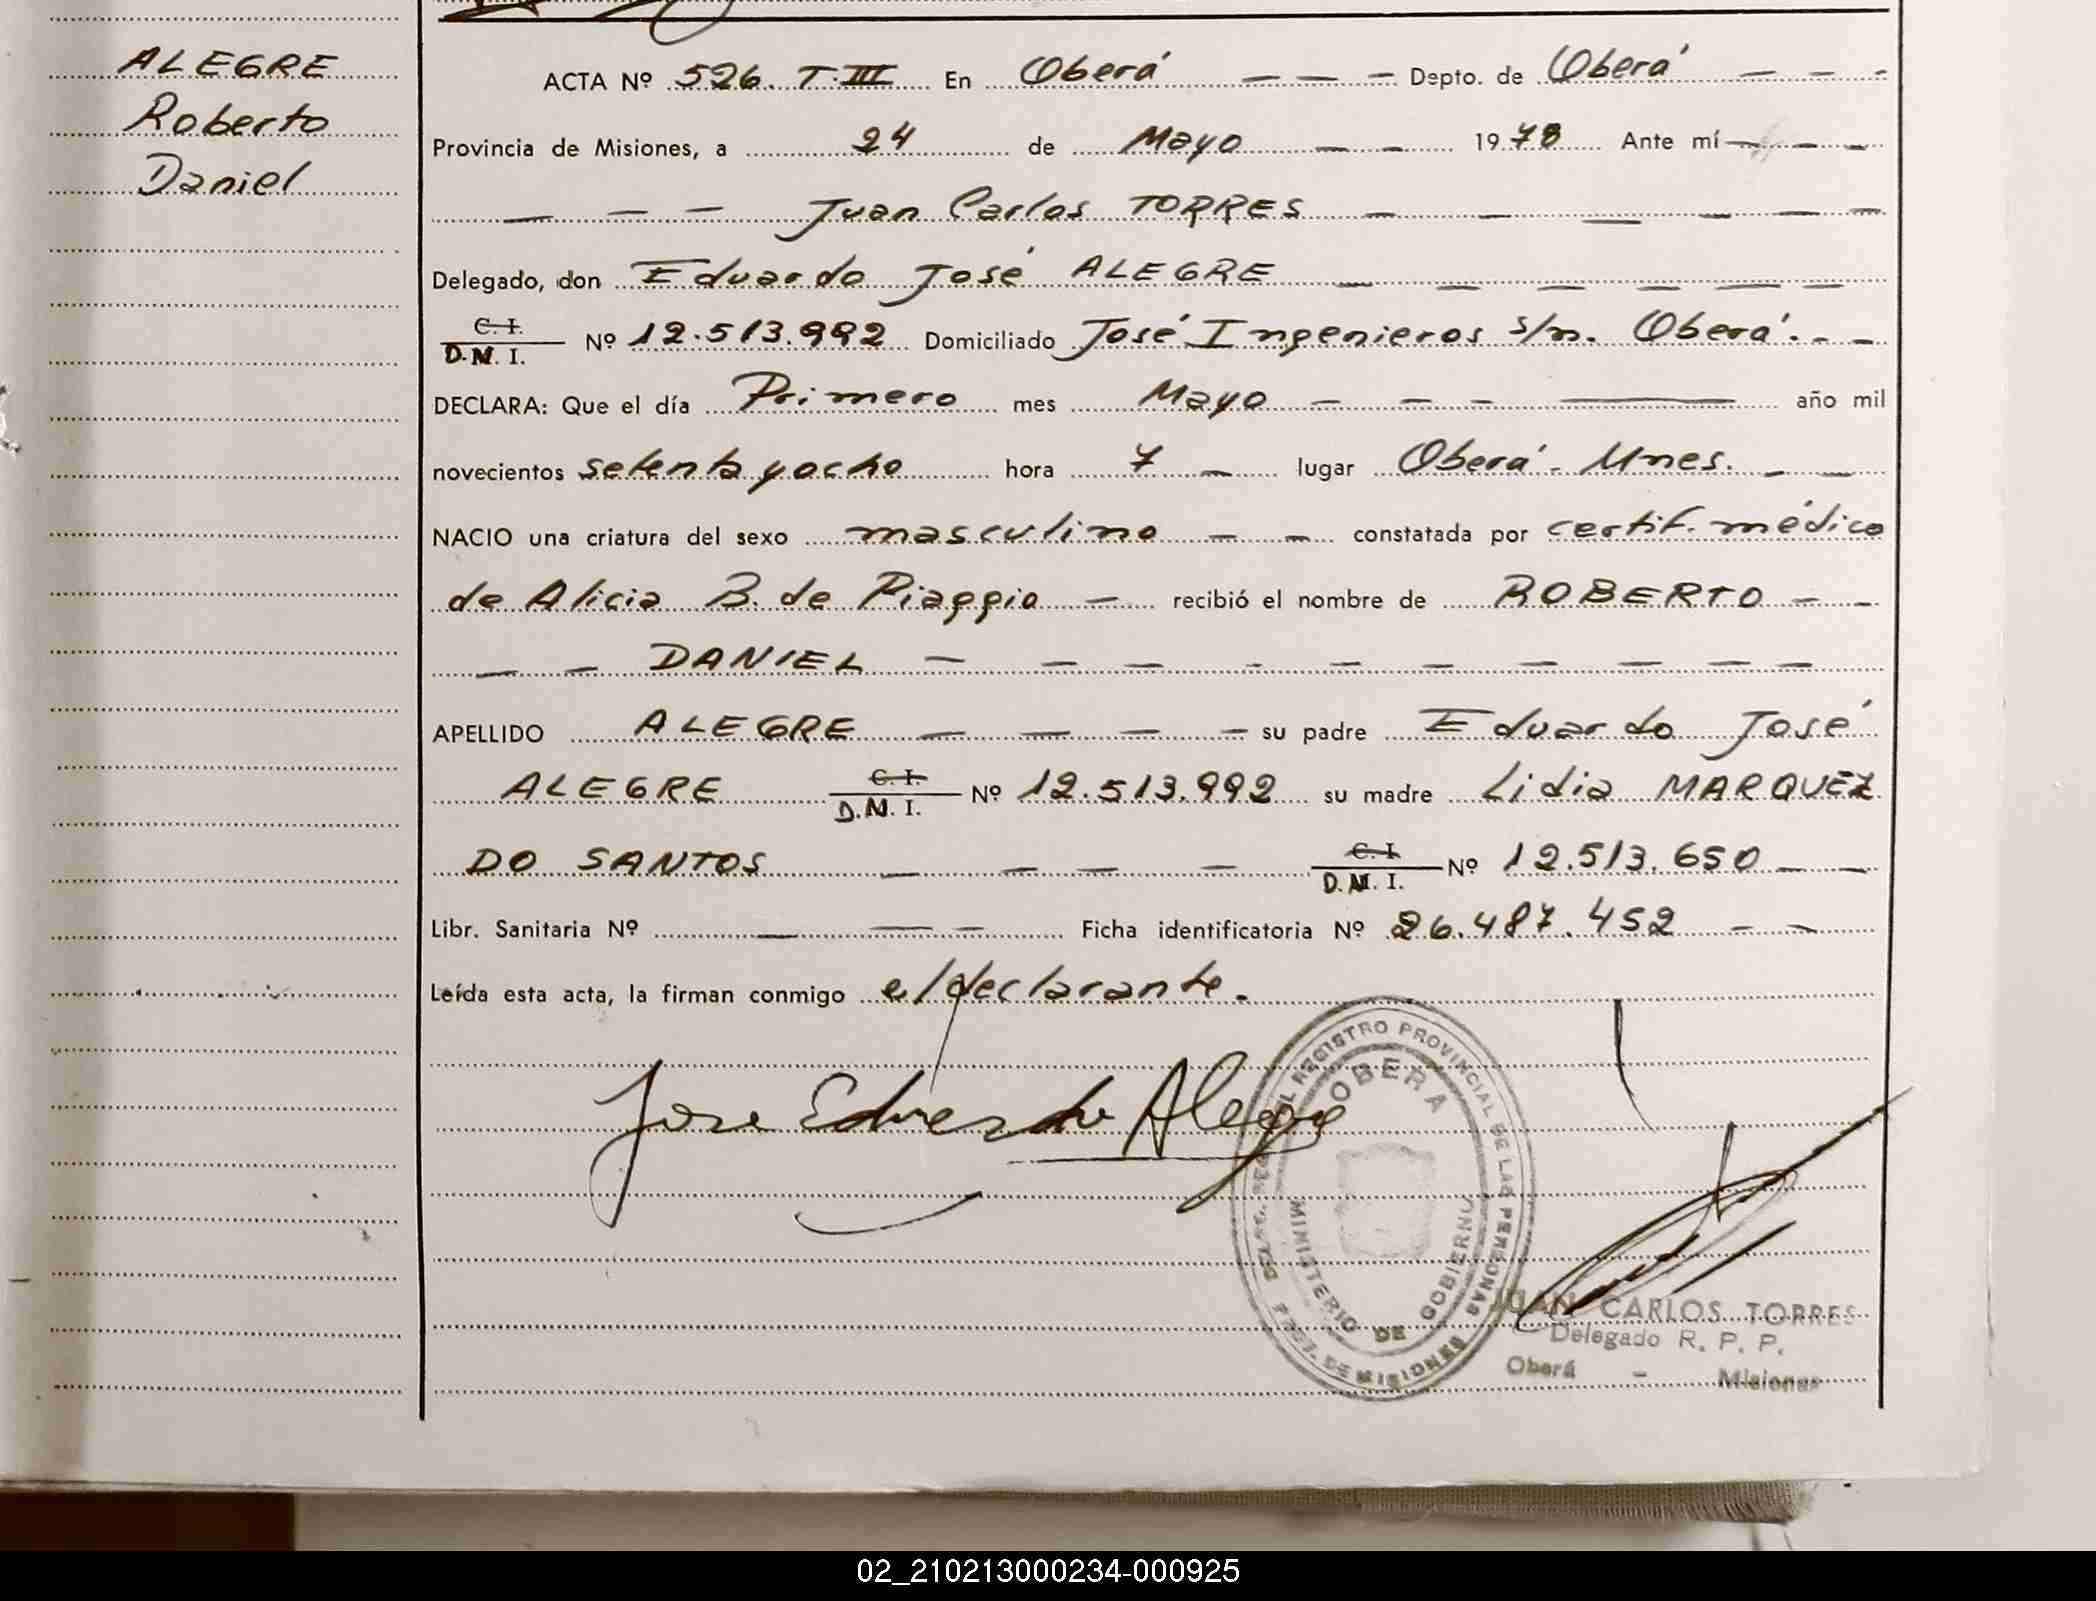 ALEGRE
Roberto
Daniel
ACTA Nº 526. T. III En Oberá — — — Depto. de Oberá — — -
Provincia de Misiones, a 24 de Mayo — — 1978 Ante mí — — —
— — — Juan Carlos TORRES — — — — — —
Delegado, don Eduardo José ALEGRE — — — — — —
C. I. Nº 12.513.992 Domiciliado José Ingenieros s/n. Oberá. - —
D. M. I.
DECLARA: Que el día Primero mes Mayo — — — — año mil
novecientos setenta y ocho hora 7 — lugar Oberá - Mnes. — —
NACIO una criatura del sexo masculino — — constatada por certif. médico
de Alicia B. de Piaggio — recibió el nombre de ROBERTO — —
— — DANIEL — — — — — — — — — —
APELLIDO ALEGRE — — — — su padre Eduardo José
ALEGRE C. I. Nº 12.513.992 su madre Lidia MARQUEZ
D. M. I.
DO SANTOS — — — — C. I. Nº 12.513.650 — —
D. M. I.
Libr. Sanitaria Nº — — — Ficha identificatoria Nº 26.487.452 — —
Leída esta acta, la firman conmigo el declarante.
Jose Eduardo Alegre
REGISTRO PROVINCIAL DE LAS PERSONAS
OBERA
MINISTERIO DE GOBIERNO
DE MISIONES
JUAN CARLOS TORRES
Delegado R. P. P.
Oberá - Misiones
02_210213000234-000925